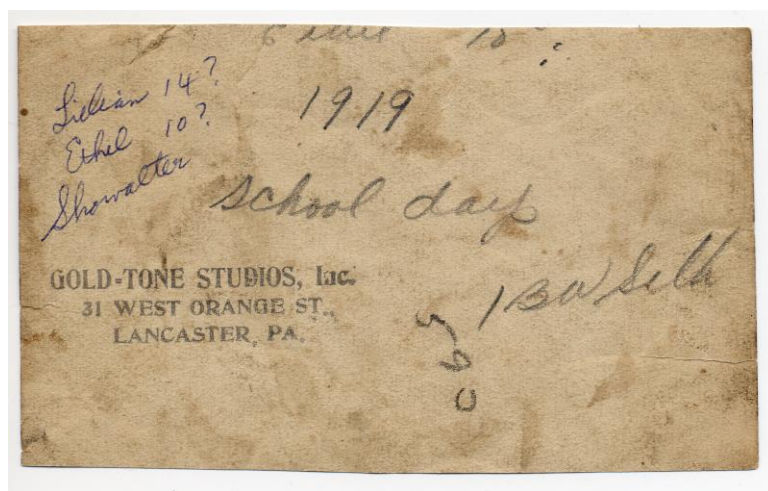 Lillian 14?
Ethel 10?
Showalter
1919
School day
GOLD-TONE STUDIOS, Inc.
31 WEST ORANGE ST.,
LANCASTER, PA.
1 BW